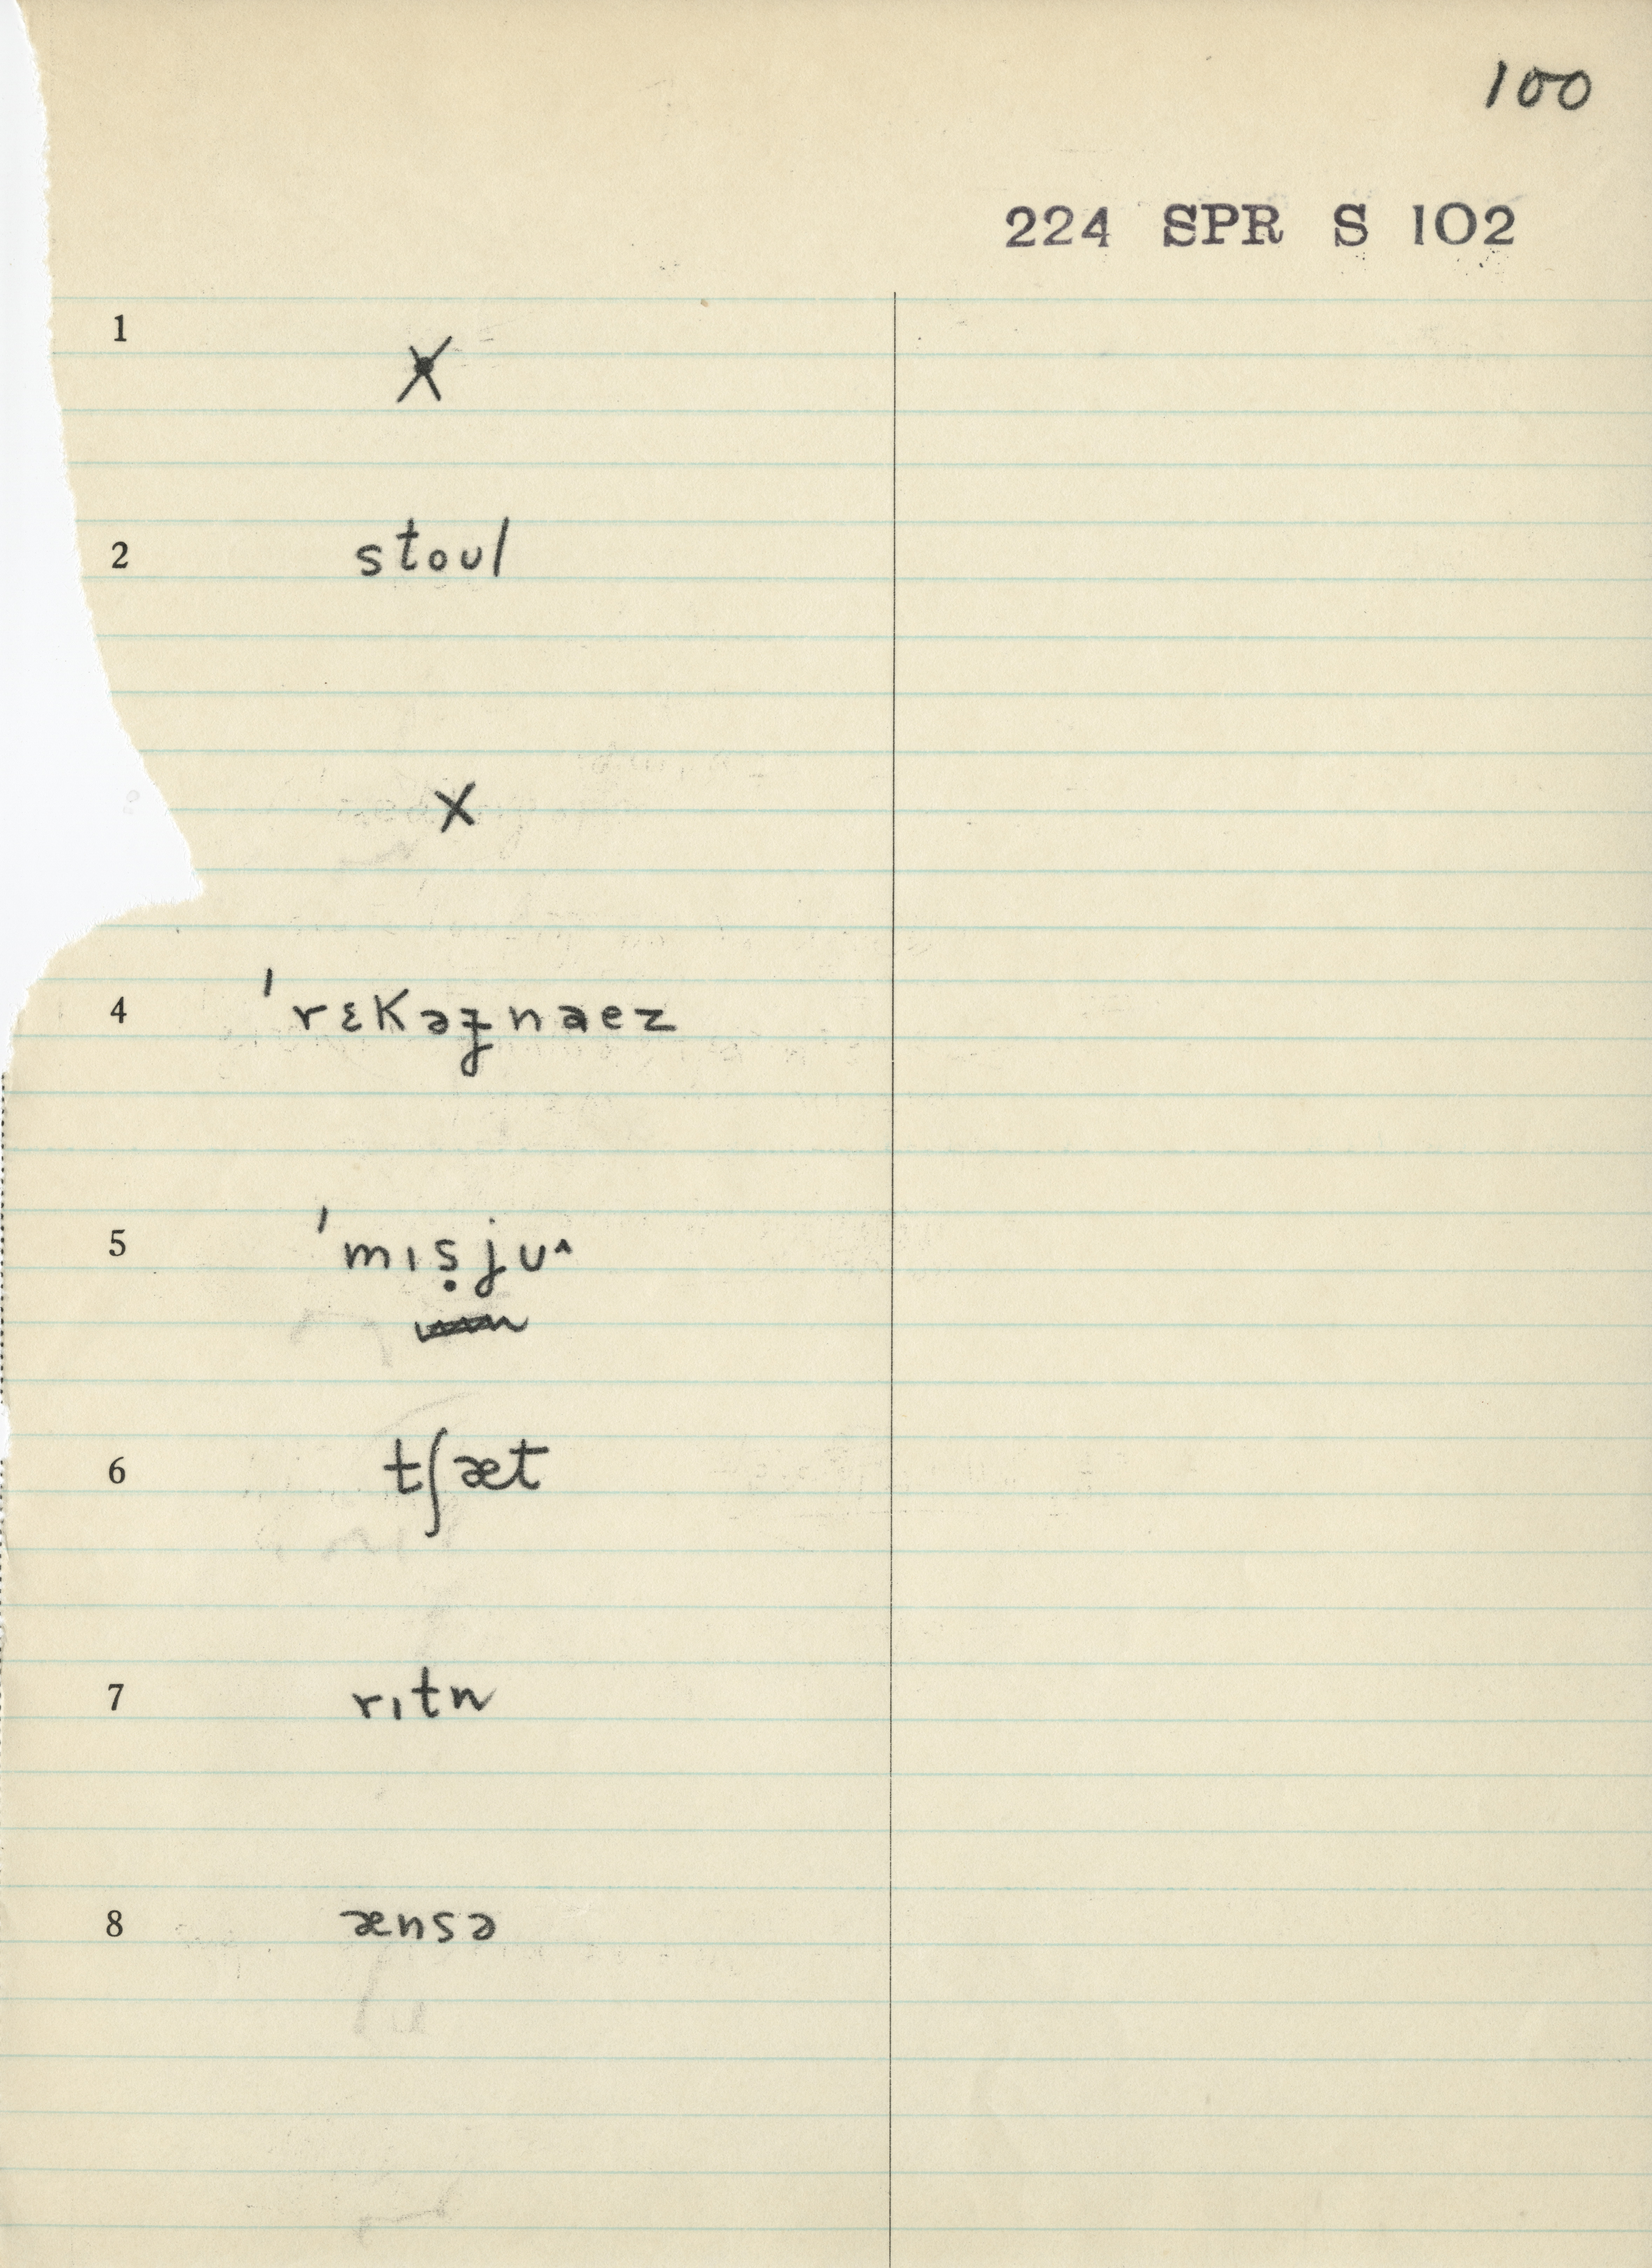 100
224 SPR S 102
1 X
2 stoʊl
X
4 ˈrɛkəʒnaez
5 ˈmɪṣjʊ^
6 tʃæt
7 rɪtn
8 ænsə